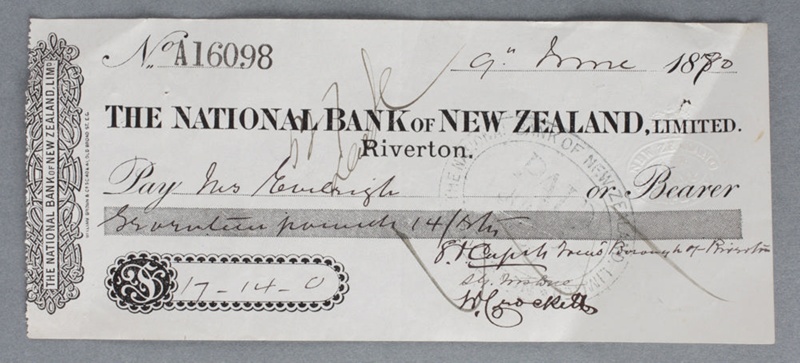 No A16098
9th June 1880
THE NATIONAL BANK OF NEW ZEALAND, LIMITED.
Riverton.
Pay Mrs or Bearer
Seventeen pounds 14/
Borough of Riverton
17-14-0
W Crockett
THE NATIONAL BANK OF NEW ZEALAND, LIMD.
THE NATIONAL BANK OF NEW ZEALAND LIMD
PAID